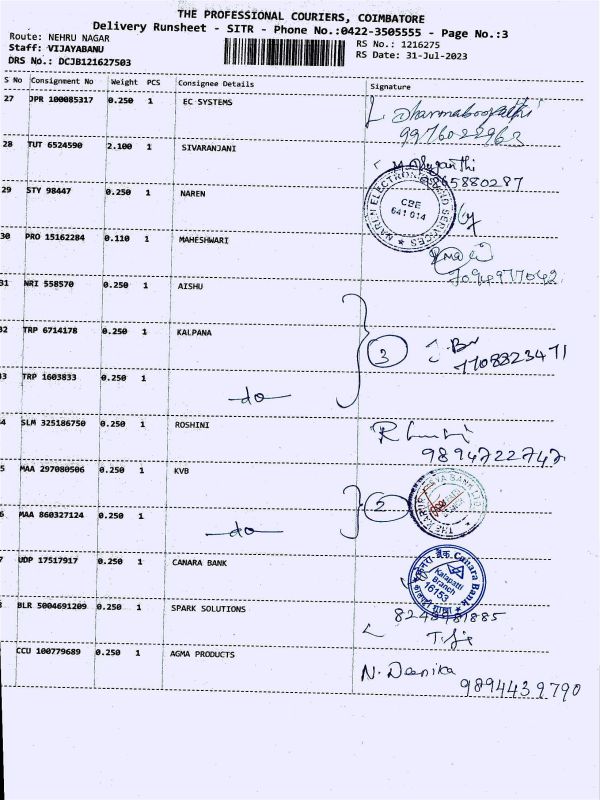 THE PROFESSIONAL COURIERS, COIMBATORE
Delivery Runsheet - SITR - Phone No.:0422-3505555 - Page No.:3
Route: NEHRU NAGAR
RS No.: 1216275
Staff: VIJAYABANU
RS Date: 31-Jul-2023
DRS No.: DCJB121627503
S No Consignment No Weight PCS Consignee Details Signature
27 JPR 100085317 0.250 1 EC SYSTEMS Dharmaboopathi
9976022963
28 TUT 6524590 2.100 1 SIVARANJANI
9865880287
29 STY 98447 0.250 1 NAREN
NAREN ELECTRONICS AND SERVICES
CBE
641 014
30 PRO 15162284 0.110 1 MAHESHWARI
7094977042
31 NRI 558570 0.250 1 AISHU
32 TRP 6714178 0.250 1 KALPANA 3
7708823471
3 TRP 1603833 0.250 1 do
4 SLM 325186750 0.250 1 ROSHINI
9894722747
5 MAA 297080506 0.250 1 KVB 2
6 MAA 860327124 0.250 1 do
7 UDP 17517917 0.250 1 CANARA BANK
Canara Bank
Kalapatti
Branch
16153
BLR 5004691209 0.250 1 SPARK SOLUTIONS
CCU 100779689 0.250 1 AGMA PRODUCTS N. Deepika
9894439790